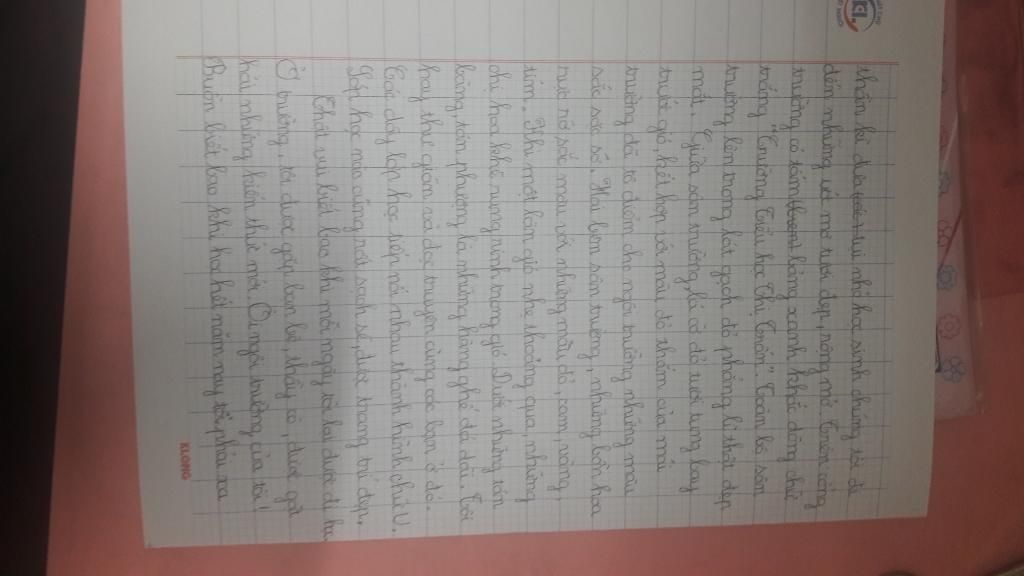 thần kì đưa lối lũ nhỏ học sinh chúng tôi đi
đến những ước mơ tươi đẹp, rộng mở. Trên cổng
trường có tấm bảng xanh khắc dòng chữ
trắng "Trường Tiểu học Thị Trấn". Toàn bộ sân
trường lên trong lát gạch đỏ phẳng lì thật đẹp
mắt. Giữa sân trường, lá cờ đỏ tươi tung bay
trước gió, kết hợp với màu đỏ thắm của mái
trường đã tô điểm cho ngôi trường những màu
sắc sặc sỡ. Hai bên sân trường, những bồn hoa
rực rỡ sắc màu với những màu đỏ, cam, vàng,
tím. Khi một làn gió nhẹ thoảng qua, những
chị hoa khẽ rung rinh trong gió. Dưới những tán
bàng, tán phượng là những hàng ghế đá dài. Tôi
hay thư giãn và đọc truyện cùng các bạn ở đó.
Các dãy lớp học tiếp nối nhau thành hình chữ U.
Lớp học nào cũng mới, sạch sẽ, được trang trí đẹp.
Thật vui biết bao khi mỗi ngày tôi lại được đi học
Ở trường, tôi được gặp bạn bè, thầy cô, được gặt
hái những kiến thức mới. Ôi ngôi trường của tôi!
Buồn biết bao khi học hết năm nay tôi phải xa
KLONG